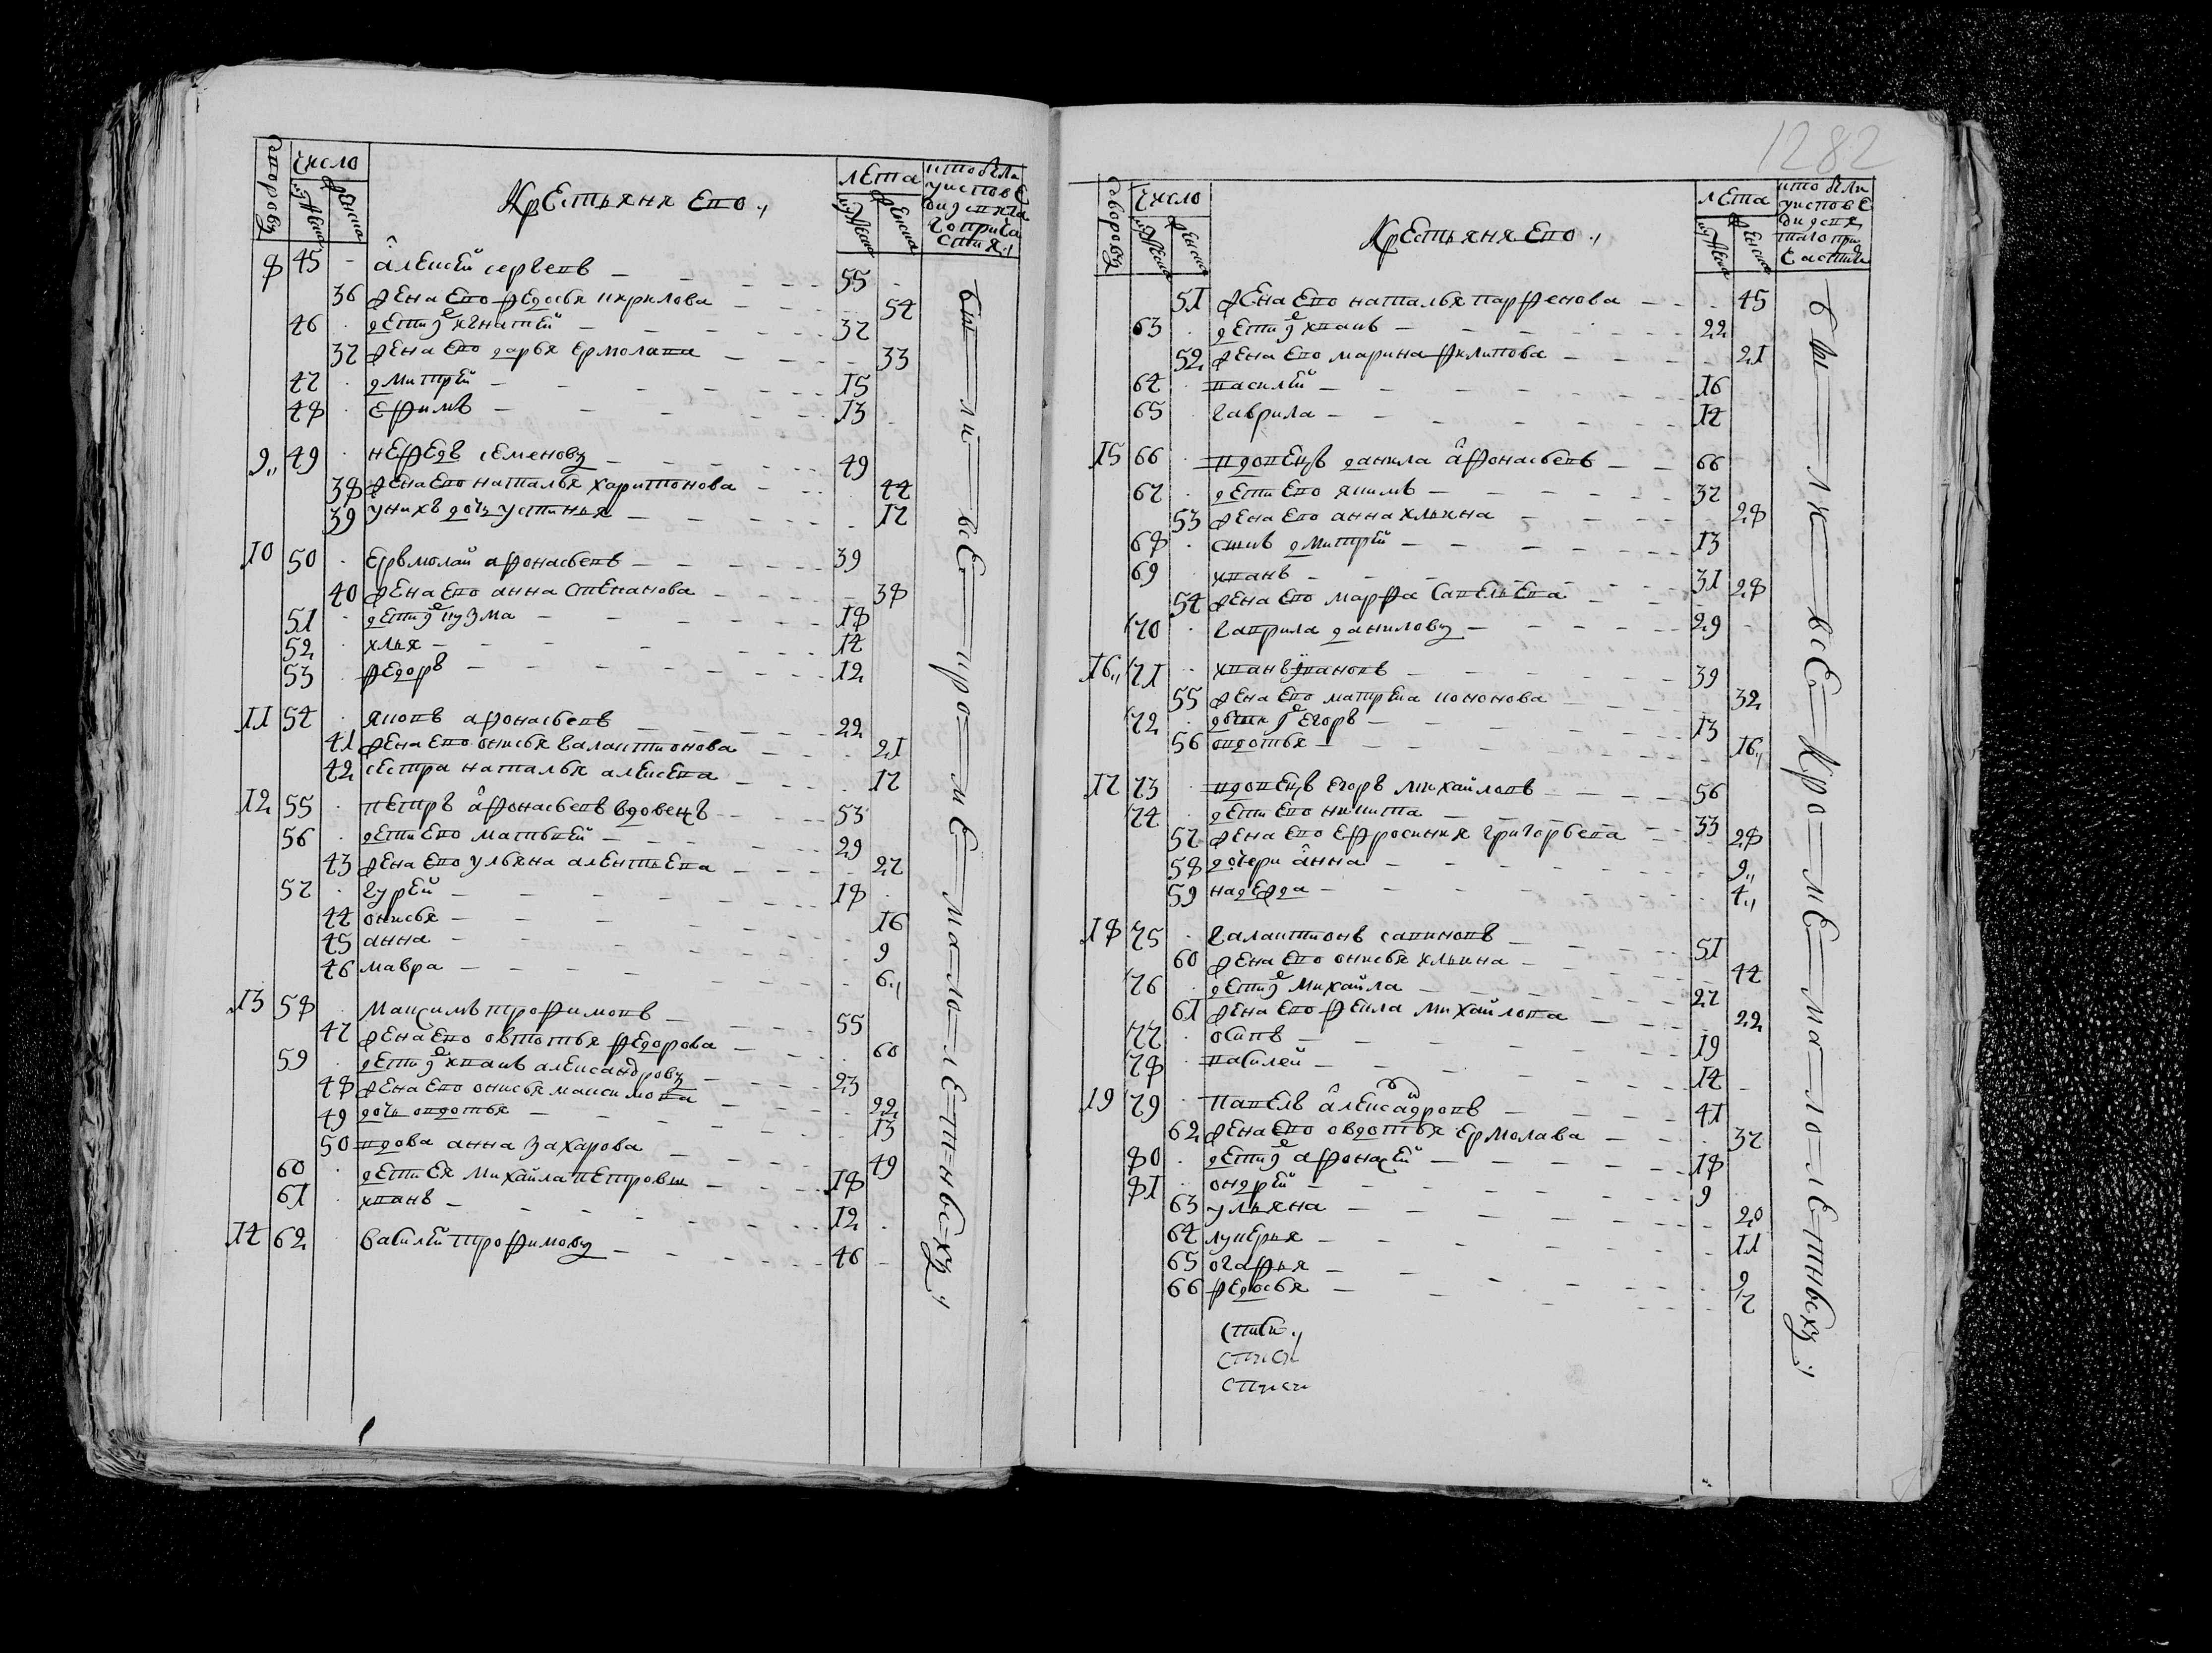 дворовъ
число
мужеска
женска
Крестьяня ево
лета
мужеска
женска
кто были
у испове
ди и с тя
8 45 - алексей сергеевъ 55
36 жена ево федосья кирилова 54
46 дети ж игнатей 37
37 жена ево дарья ермолава 33
47 дмитрей 15
48 ефимъ 13
9 49 нефедъ семеновъ 49
38 жена ево наталья харитонова 44
39 у нихъ дочь устинья 17
10 50 ерьмолай афонасьевъ 39
40 жена ево анна степанова 38
51 дети ж кузма 18
52 илья 14
53 федоръ 12
11 54 яковъ афонасьевъ 22
41 жена ево онисья галактионова 21
42 сестра наталья алексева 17
12 55 петръ афонасьевъ вдовецъ 53
56 дети ево матьвей 29
43 жена ево ульяна алентьева 27
57 гурей 18
44 онисья 16
45 анна 9
46 мавра 6
13 58 максимъ трофимовъ 55
47 жена ево овтотья федорова 60
59 дети ж иванъ александровъ 23
48 жена ево онисья максимова 22
49 дочь овдотья 13
50 вдова анна захарова 49
60 дети ея михайла петровы 18
61 иванъ 12
14 62 василей трофимовъ 46
бы ли все кро ме ма ло ле т ныхъ
1282
дворовъ
число
мужеска
женска
Крестьяня ево
лета
мужеска
женска
кто были
у испове
ди и с вя
таго при
частия
51 жена ево наталья парфенова 45
63 дети ж иванъ 22
52 жена ево марина филипова 21
64 василей 16
65 гаврила 14
15 66 вдовецъ данила афонасьевъ 66
67 дети ево якимъ 37
53 жена ево анна ильина 28
68 сынъ дмитрей 13
69 иванъ 31
54 жена ево марфа савельева 28
70 гаврила даниловъ 29
16 71 иванъ ивановъ 39
55 жена ево матрена кононова 32
72 дети ж егоръ 13
56 овдотья 16
17 73 вдовецъ егоръ михайловъ 56
74 дети ево никита 33
57 жена ево ефросинья григорьева 28
58 дочери анна 9
59 надежда 4
18 75 галактионъ савиновъ 51
60 жена ево онисья ильина 44
76 дети ж михайла 27
61 жена ево фекла михайлова 22
77 осипъ 19
78 василей 14
19 79 павелъ алексадровъ 41
62 жена ево овдотья ермолава 37
80 дети ж афонасей 18
81 ондрей 9
63 ульяна 20
64 лукерья 11
65 огафья 9
66 федосья 7
бы ли все кро ме ма ло ле тныхъ